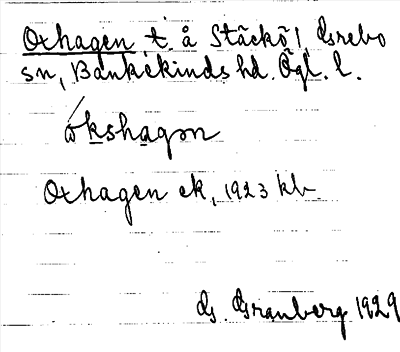 Oxhagen, t. å Stäckö, Grebo
sn, Bankekinds hd. Ögl. l.
òkshagən
Oxhagen ek, 1923 kb
G. Granberg 1929